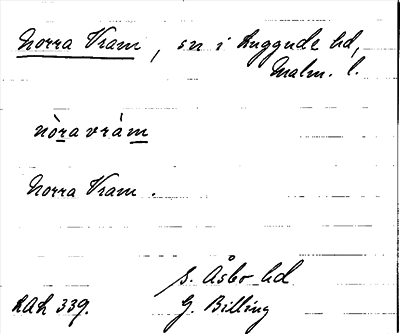 Norra Vram, sn i Luggude hd,
Malm. l.
nòra vràm
Norra Vram.
S. Åsbo hd
LAL 339. G. Billing